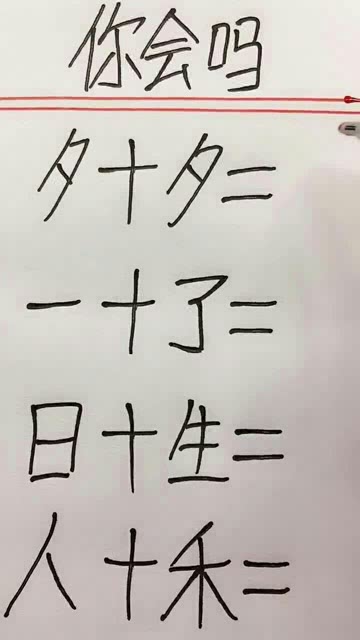 你会吗
夕+夕=
一+了=
日+生=
人+禾=